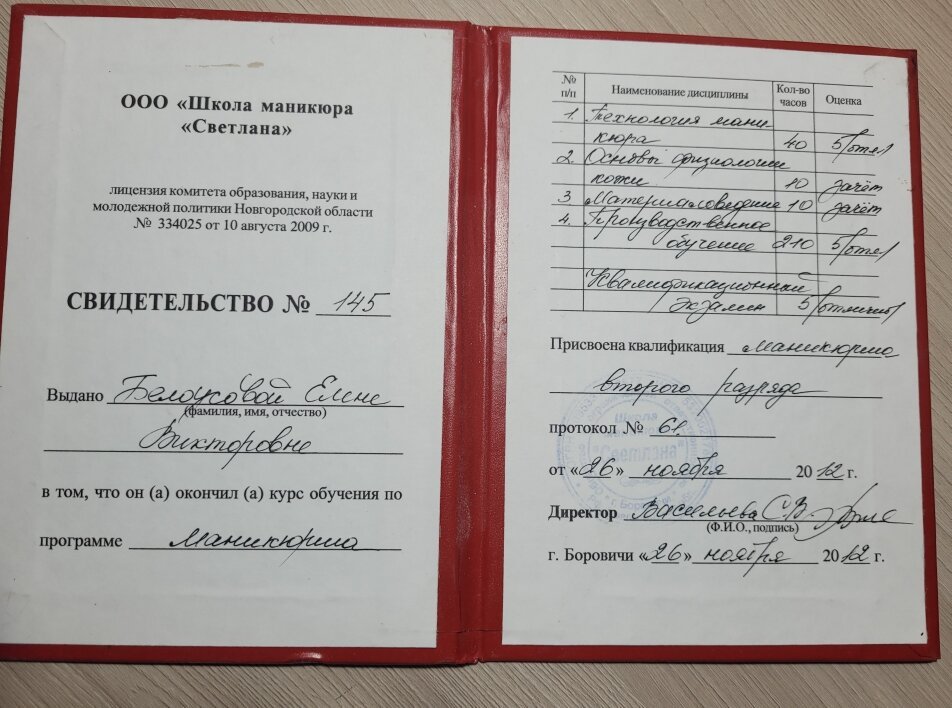 ООО «Школа маникюра
«Светлана»
лицензия комитета образования, науки и
молодежной политики Новгородской области
№ 334025 от 10 августа 2009 г.
СВИДЕТЕЛЬСТВО № 145
Выдано Белоусовой Елене
(фамилия, имя, отчество)
Викторовне
в том, что он (а) окончил (а) курс обучения по
программе Маникюрша
№ п/п Наименование дисциплины Кол-во часов Оценка
1. Технология мани-
кюра 40 5 (отл)
2. Основы физиологии
кожи 10 зачёт
3. Материаловедение 10 зачёт
4. Производственное
обучение 210 5 (отл)
Квалификационный
экзамен 5 (отлично)
Присвоена квалификация Маникюрша
второго разряда
Школа
"Светлана"
протокол № 61
от «26» ноября 2012 г.
Директор Васильева С.В.
(Ф.И.О., подпись)
г. Боровичи «26» ноября 2012 г.